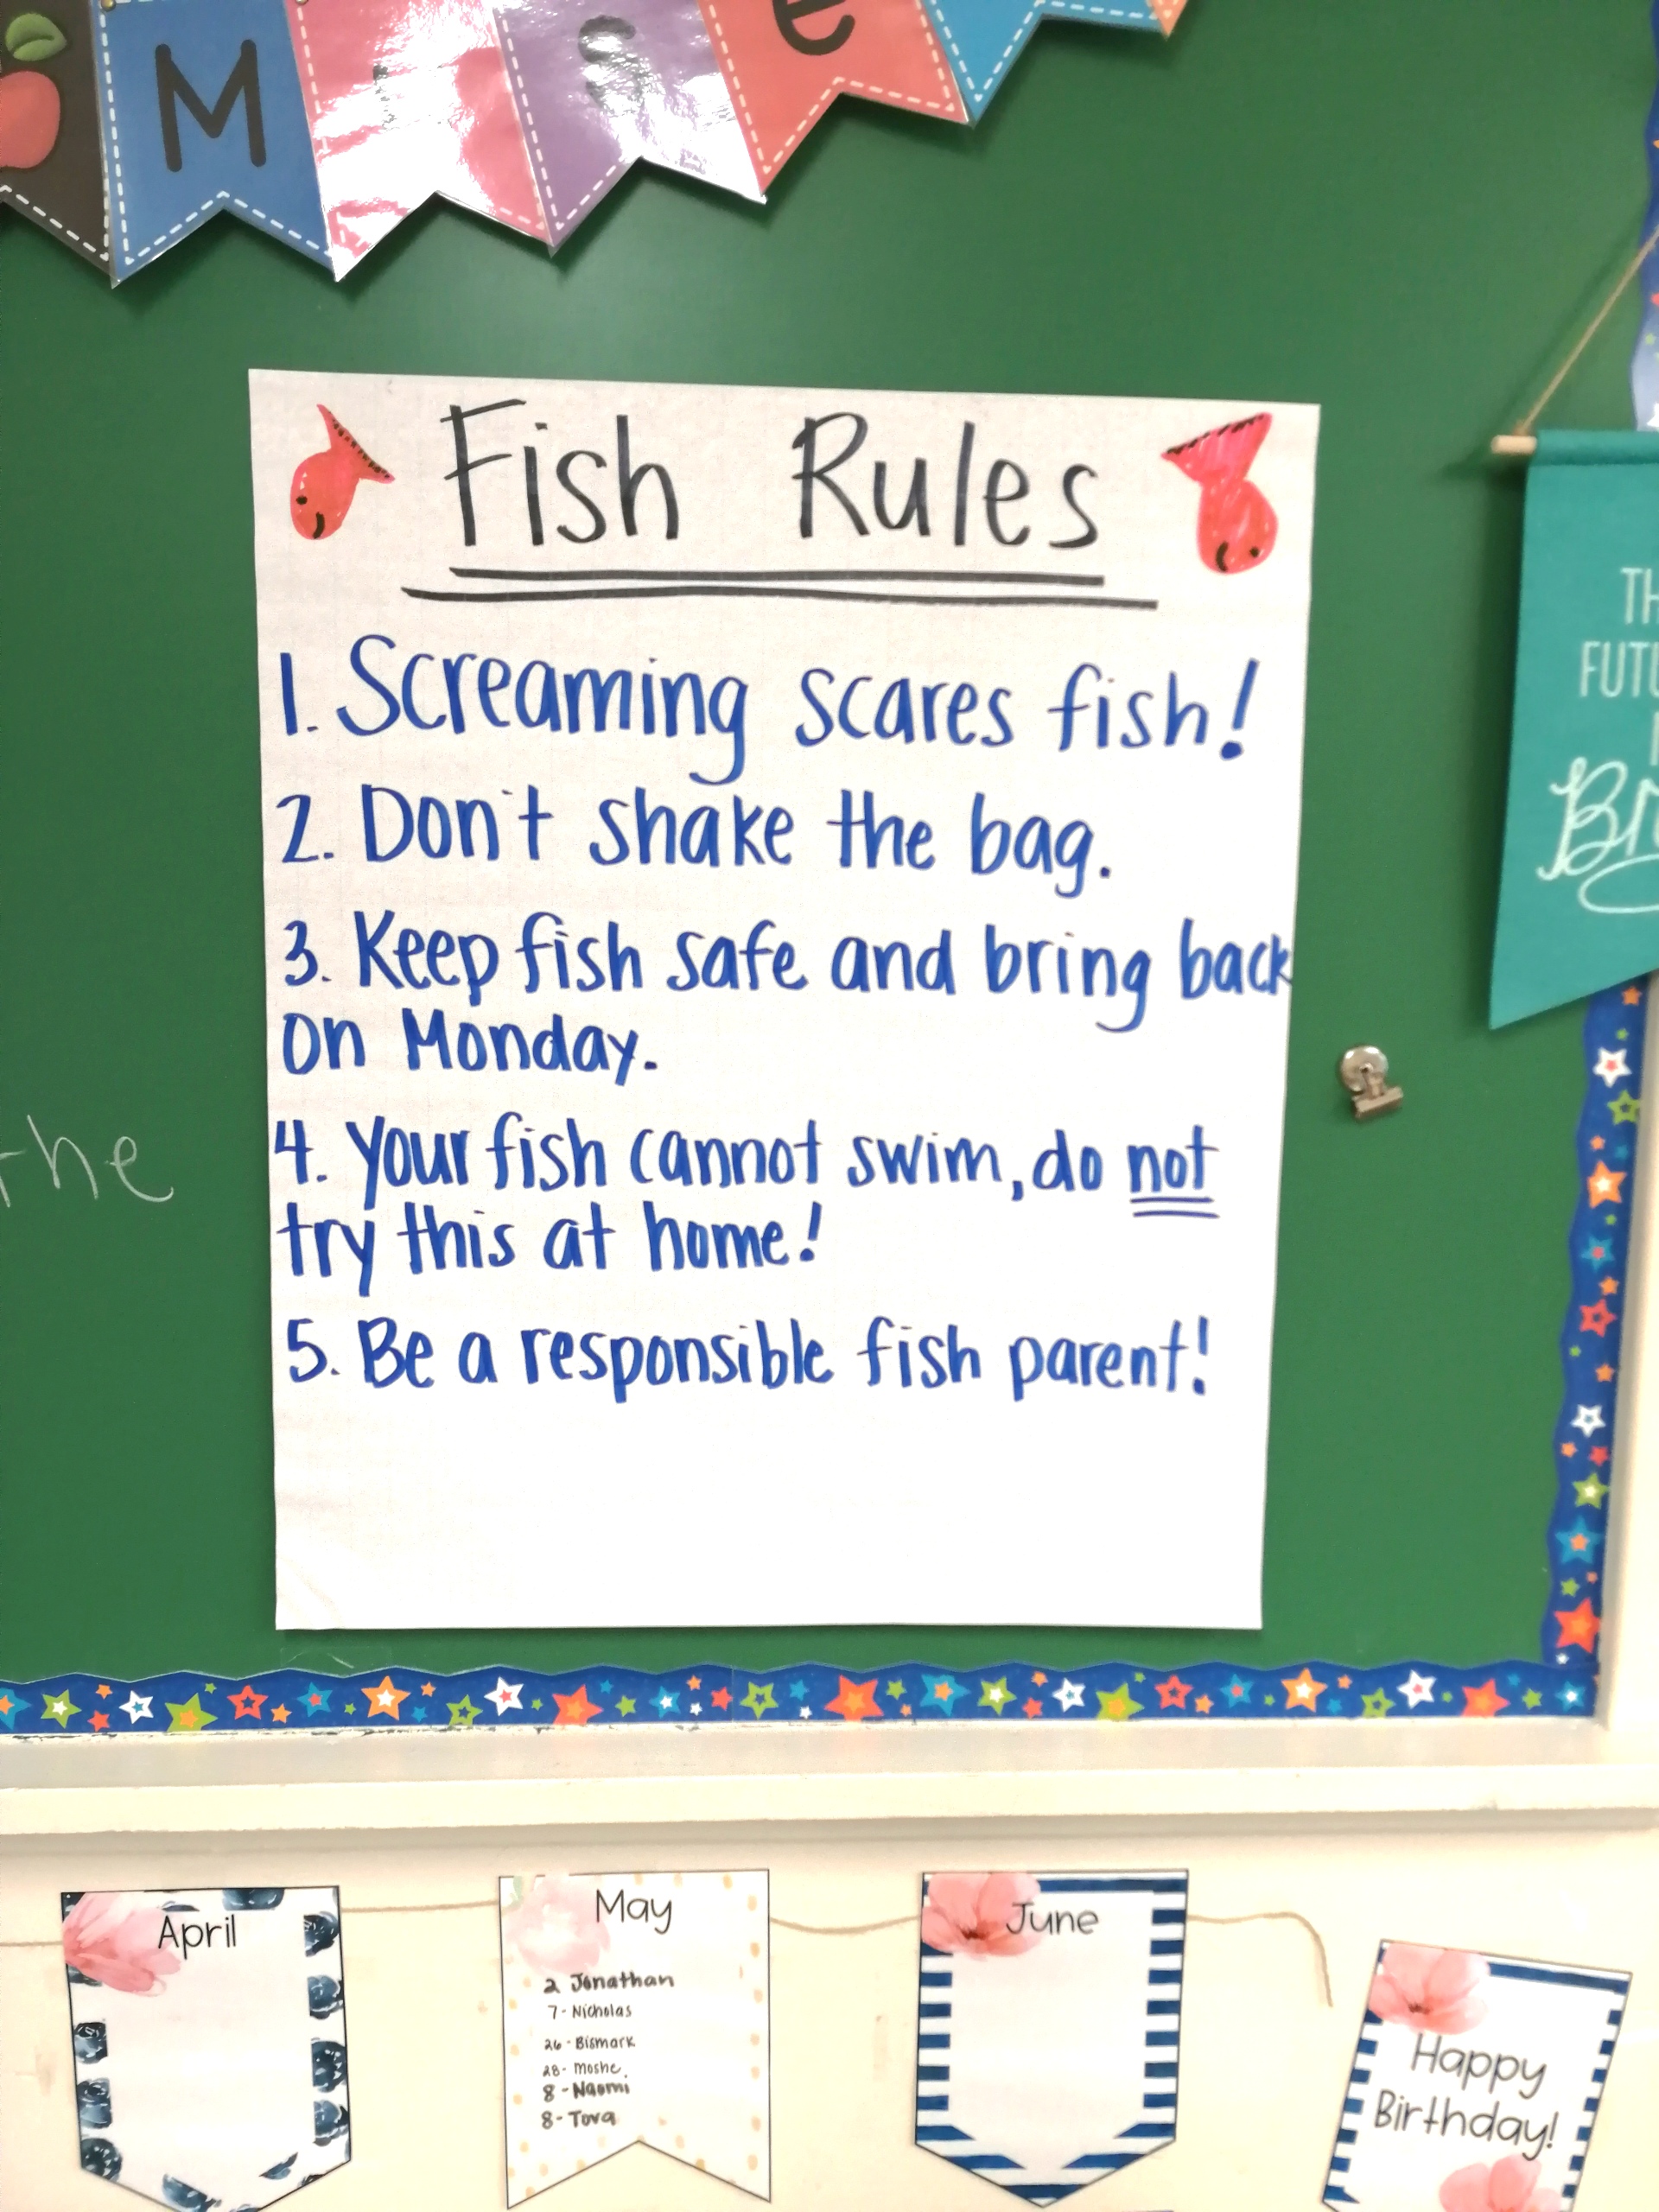 M i s e
Fish Rules
1. Screaming scares fish!
2. Don't shake the bag.
3. Keep fish safe and bring back
on Monday.
4. Your fish cannot swim, do not
try this at home!
5. Be a responsible fish parent!
the
TH
FUTU
Br
April
May
2 Jonathan
7- Nicholas
26- Bismark
28- Moshe
8- Naomi
8- Tova
June
Happy
Birthday!